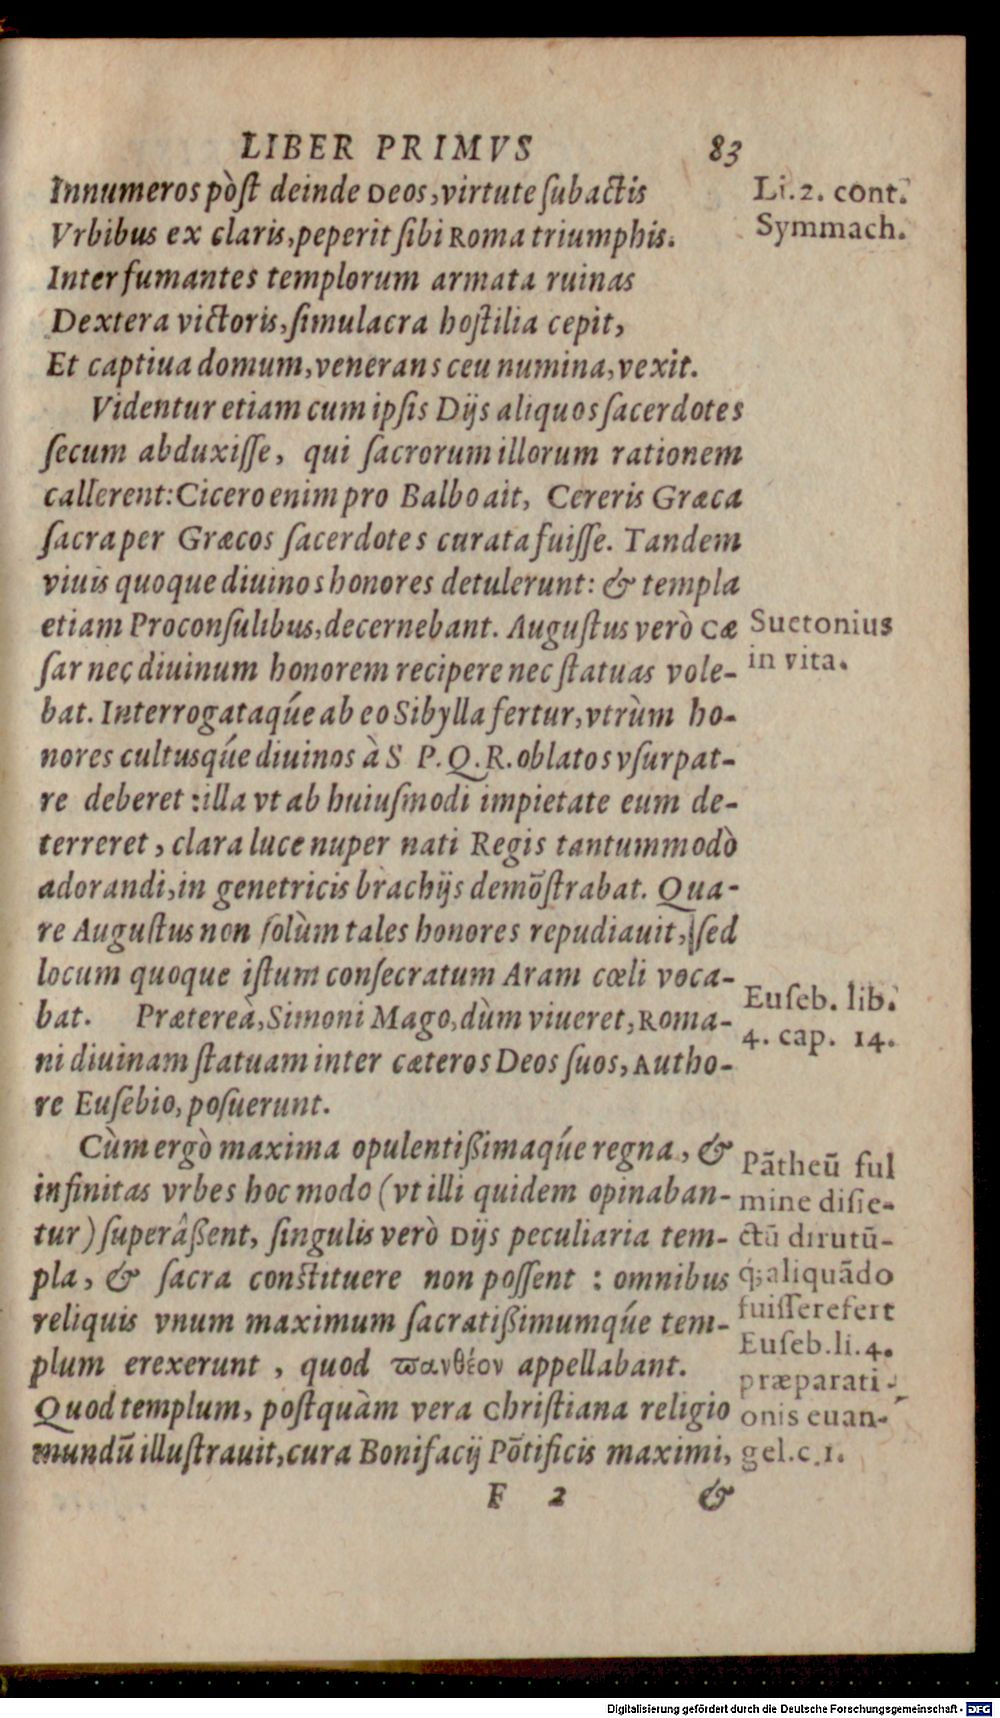 LIBER PRIMVS 83
Innumeros pòſt deinde Deos, virtute ſubactis
Vrbibus ex claris, peperit ſibi Roma triumphis.
Inter fumantes templorum armata ruinas
Dextera victoris, ſimulacra hoſtilia cepit,
Et captiua domum, venerans ceu numina, vexit.
Li.2. cont.
Symmach.
Videntur etiam cum ipſis Dijs aliquos ſacerdotes
ſecum abduxiſſe, qui ſacrorum illorum rationem
callerent: Cicero enim pro Balbo ait, Cereris Græca
ſacra per Græcos ſacerdotes curata fuiſſe. Tandem
viuis quoque diuinos honores detulerunt: & templa
etiam Proconſulibus, decernebant. Auguſtus verò Cæ
ſar nec diuinum honorem recipere nec ſtatuas vole-
bat. Interrogataq́ue ab eo Sibylla fertur, vtrùm ho-
nores cultusq́ue diuinos à S P. Q. R. oblatos vſurpat-
re deberet : illa vt ab huiuſmodi impietate eum de-
terreret, clara luce nuper nati Regis tantummodò
adorandi, in genetricis brachijs demõſtrabat. Qua-
re Auguſtus non ſolùm tales honores repudiauit, ſed
locum quoque iſtum conſecratum Aram cœli voca-
bat. Præterea, Simoni Mago, dùm viueret, Roma-
ni diuinam ſtatuam inter cæteros Deos ſuos, Autho-
re Euſebio, poſuerunt.
Suetonius
in vita.
Euſeb. lib.
4. cap. 14.
Cùm ergò maxima opulentißimaq́ue regna, &
infinitas vrbes hoc modo (vt illi quidem opinaban-
tur) ſuperâßent, ſingulis verò Dijs peculiaria tem-
pla, & ſacra conſtituere non poſſent : omnibus
reliquis vnum maximum ſacratißimumq́ue tem-
plum erexerunt, quod ϖανθέον appellabant.
Quod templum, poſtquàm vera Chriſtiana religio
mundũ illuſtrauit, cura Bonifacij Põtificis maximi,
Pãtheũ ful
mine diſie-
ctũ dirutũ-
q́; aliquãdo
fuiſſe refert
Euſeb. li. 4.
præparati-
onis euan-
gel. c. 1.
F 2 &
Digitalisierung gefördert durch die Deutsche Forschungsgemeinschaft - DFG